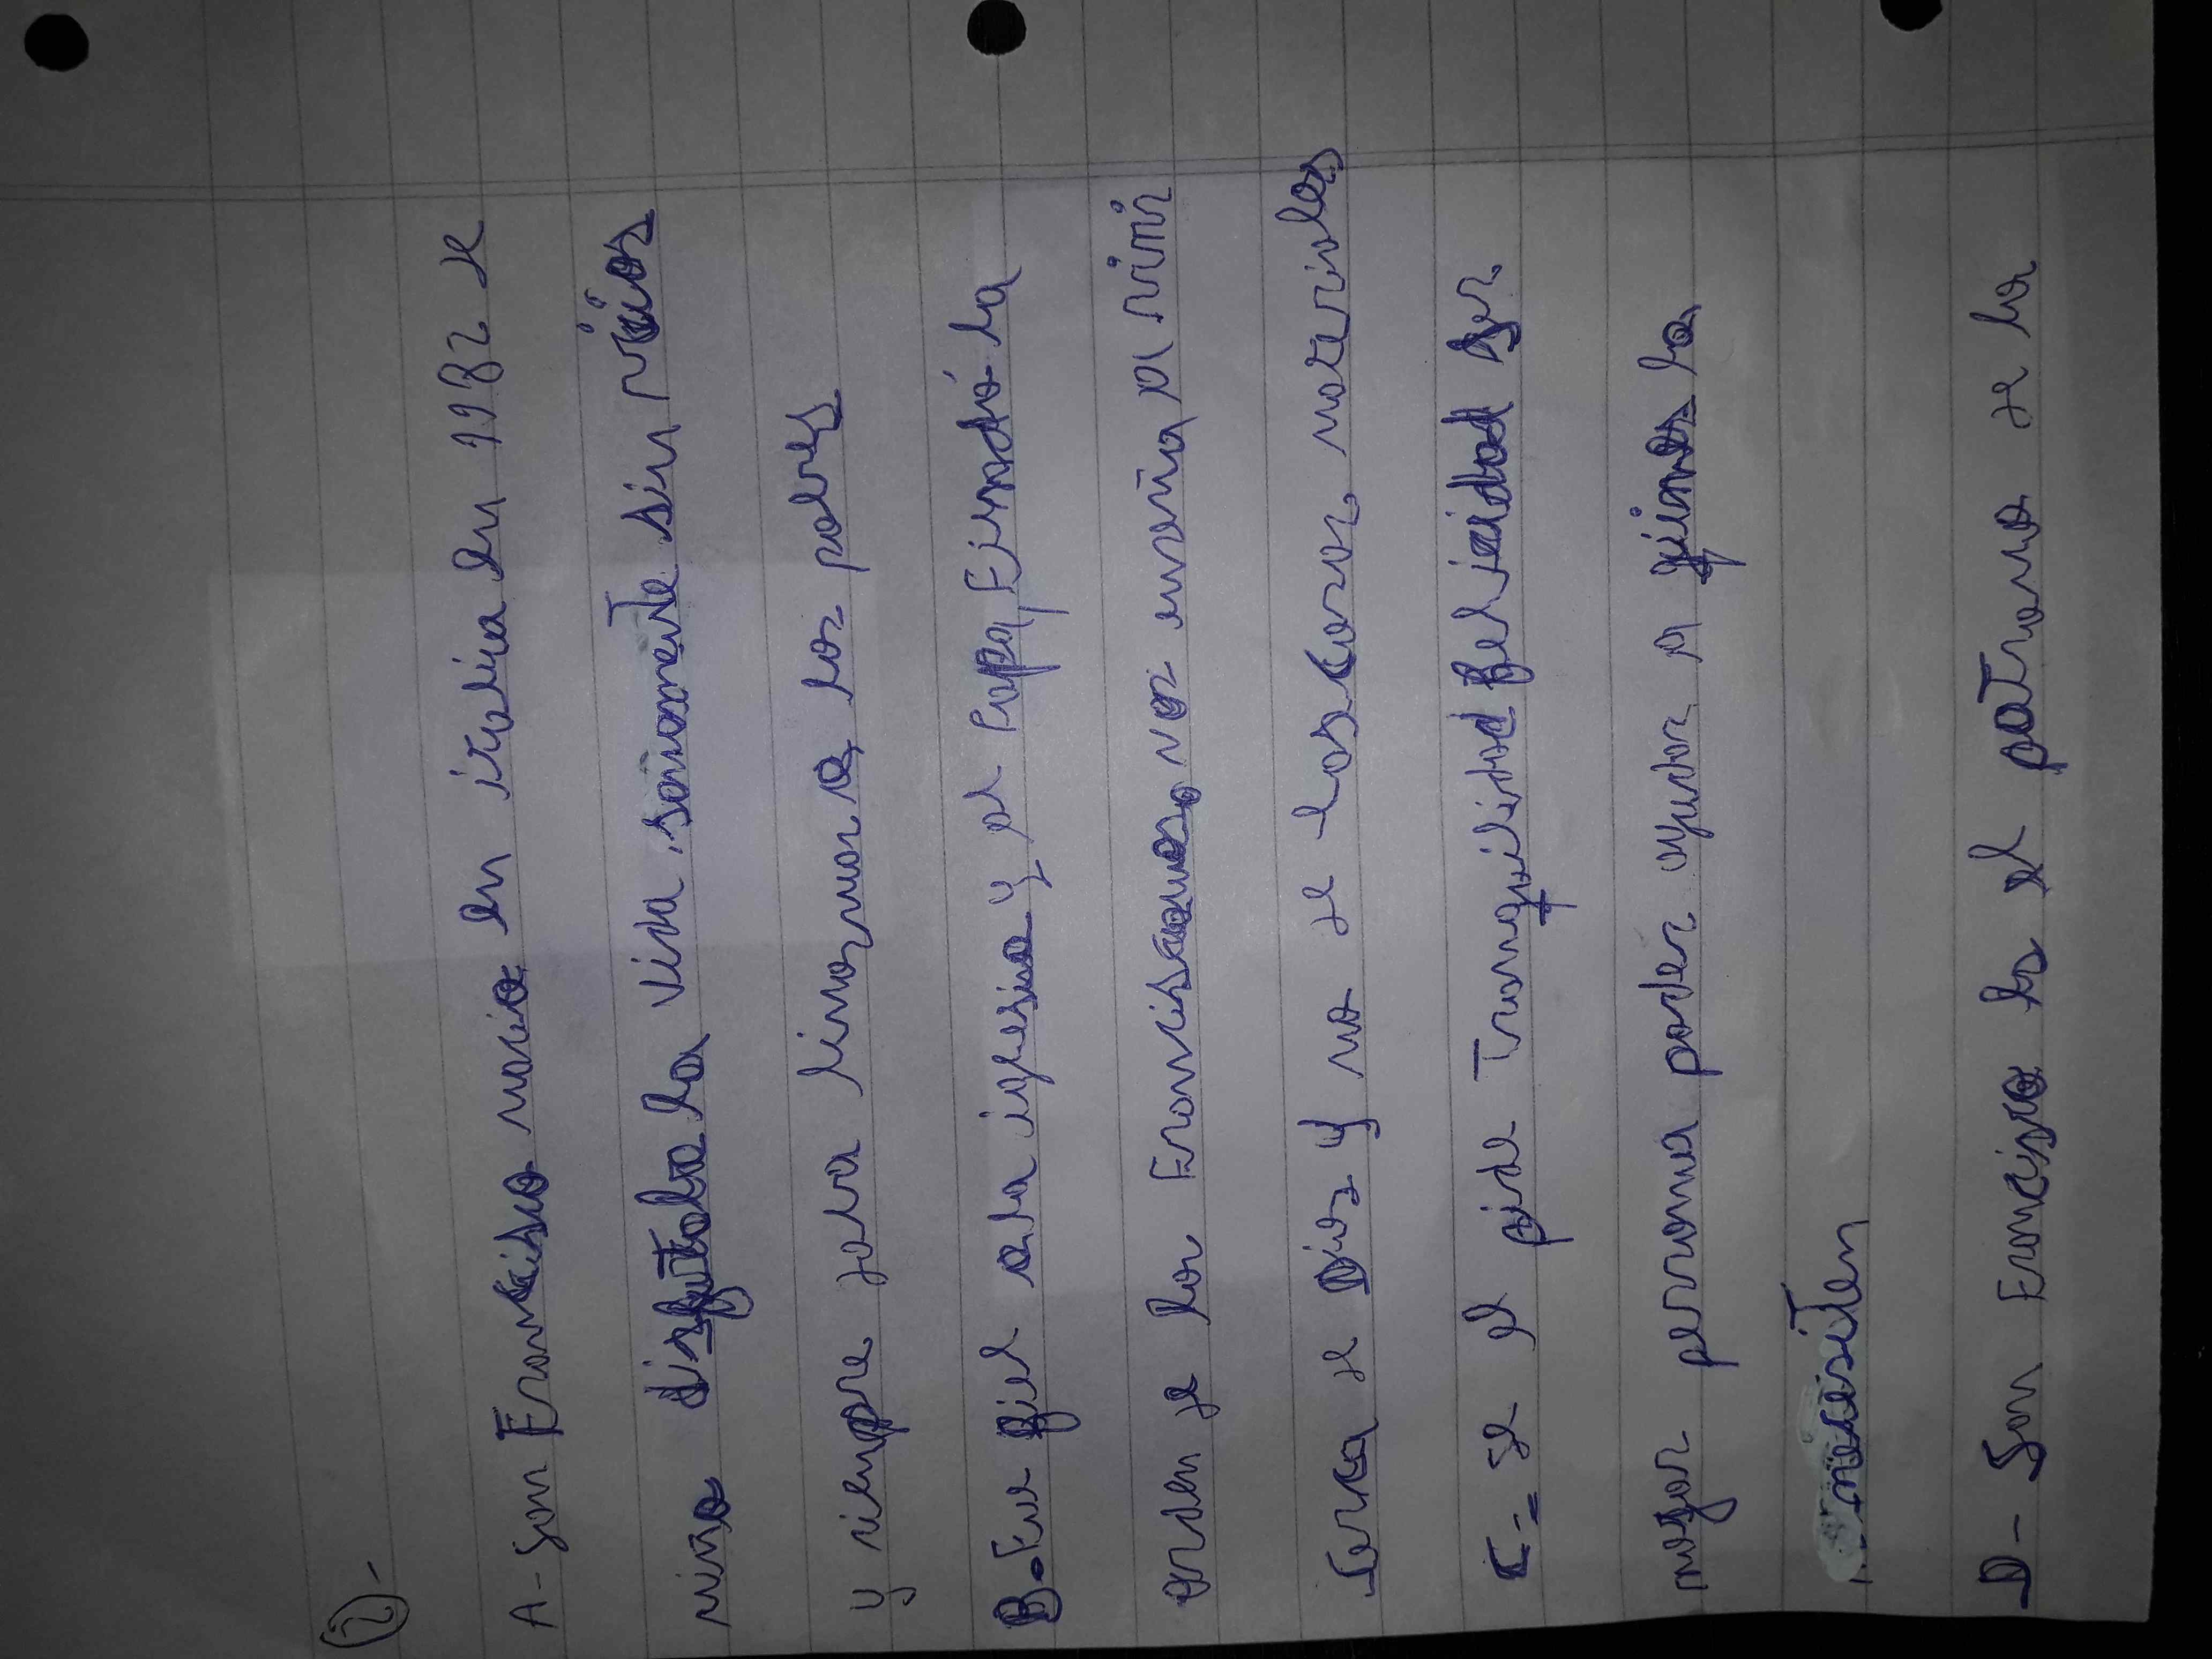 2-
A- San Francisco nacio en italia en 1182 de
niño disfrutaba la vida sanamente sin vicios
y siempre daba limosnas a los pobres
B- Fue fiel ala iglesia y al Papa, Fundó la
orden de los Franciscanos, nos enseña a vivir
Serca de Dios y no de las cosas materiales
C- se el pide Tranquilidad felicidad Ser
mejor persona poder ayudar a quienes lo
nesesiten
D- San Francisco es el patrono de la